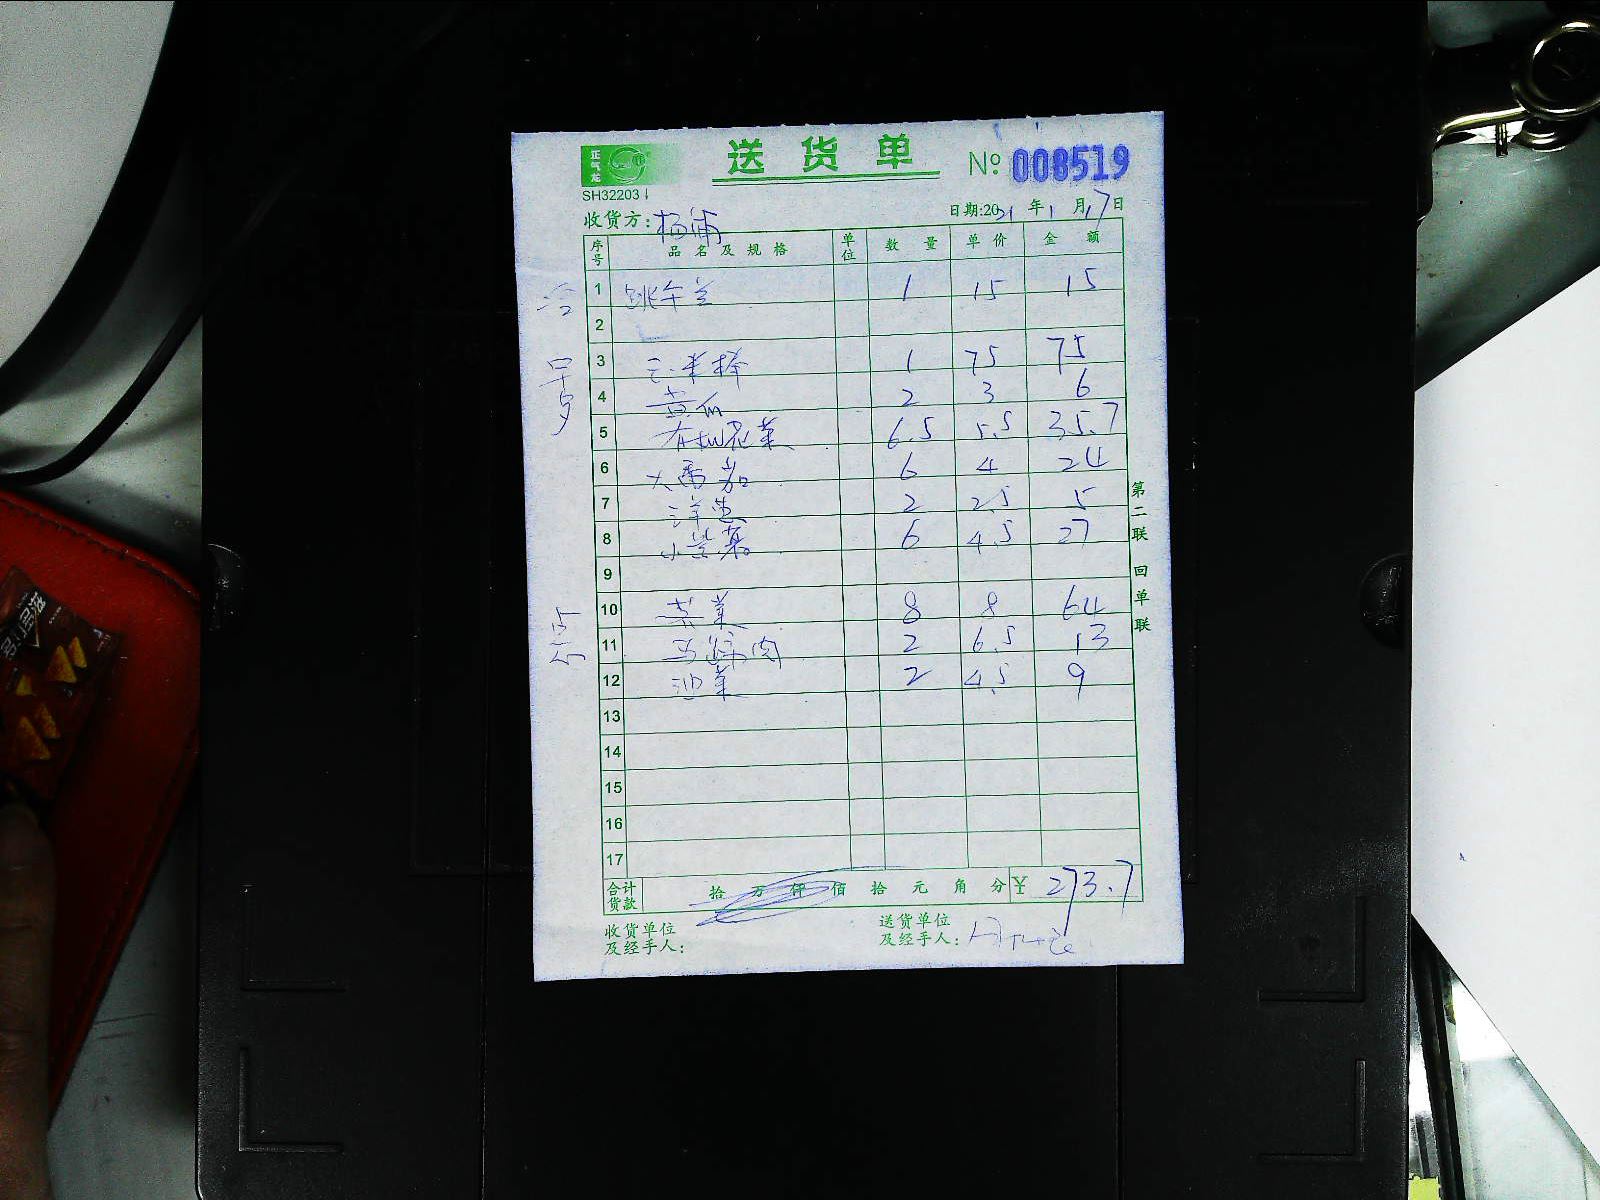 正气龙
送货单 No 008519
SH32203
收货方: 杨浦 日期:2021年1月17日
序号 品名及规格 单位 数量 单价 金额
冷 1 1 15 15
2
早夕 3 1 75 75
4 黄瓜 2 3 6
5 有机花菜 6.5 5.5 35.7
6 大番茄 6 4 24
7 洋葱 2 2.5 5
8 小 6 4.5 27
9
10 菜 8 8 64
11 马蹄肉 2 6.5 13
12 油菜 2 4.5 9
13
14
15
16
17
第二联 回单联
合计货款 拾万仟佰拾元角分 ¥ 273.7
收货单位及经手人:
送货单位及经手人: